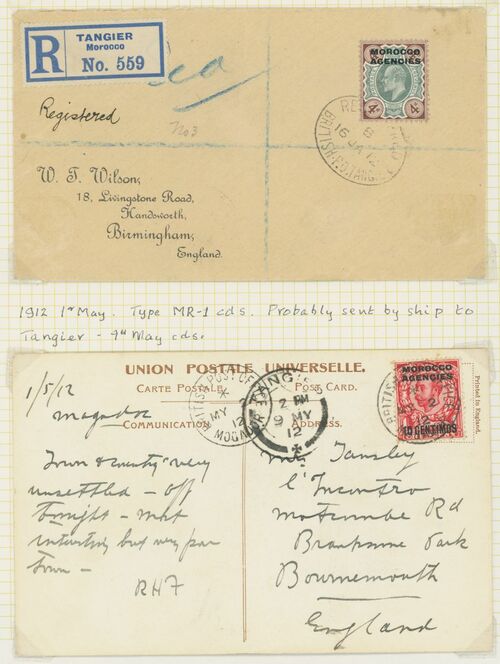 TANGIER
Morocco
R No. 559
MOROCCO
AGENCIES
4d 4d
Registered
No3
16 JA 12
W. T. Wilson,
18, Livingstone Road,
Handsworth,
Birmingham,
England.
1912 1st May. Type MR-1 cds. Probably sent by ship to
Tangier - 9th May cds.
UNION POSTALE UNIVERSELLE.
CARTE POSTALE POST CARD.
COMMUNICATION ADDRESS.
BRITISH POST OFFICE
MY 2
12
MOGADOR
TANGIER
2 PM
9 MY
12
MOROCCO
AGENCIES
10 CENTIMOS
MY 2
12
Printed in England.
1/5/12
Mogador
Town & country very
unsettled - off
tonight - most
interesting but very poor
town -
RHF
Tansley
l'Incontro
Motcombe Rd
Branksome Park
Bournemouth
England